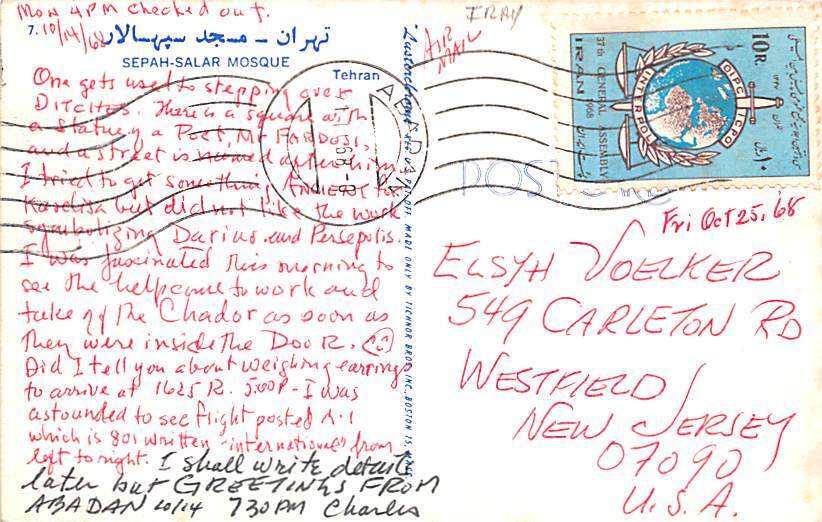 Mon 4PM checked out.
7. 10/14/68
تهران – مسجد سپهسالار
SEPAH-SALAR MOSQUE
Tehran
One gets used to stepping over
Ditches. There is a square with
a Statue, a Poet, Mr. FARDOSI,
and a street is named after him.
I tried to get something ANCIENT for
but did not like the work
symbolizing Darius and Persepolis.
I was fascinated this morning to
see the help come to work and
take off the Chador as soon as
they were inside the DooR.
Did I tell you about weighing earrings
to arrive at 1625 R. 5:00P - I was
astounded to see flight posted ٨٠١
which is 801 written "international" from
left to right. I shall write details
later but GREETINGS FROM
ABADAN 10/14 730PM Charles
"Lusterchrome" REG. U.S. PAT. OFF. MADE ONLY BY TICHNOR BROS., INC., BOSTON 15, MASS.
IRAN
AIR
MAIL
POSTCARD
10R
37th GENERAL ASSEMBLY
1968
IRAN
OIPC ICPO
INTERPOL
Fri Oct 25, '68
ELSYH VOELKER
549 CARLETON RD
WESTFIELD
NEW JERSEY
07090
U.S.A.